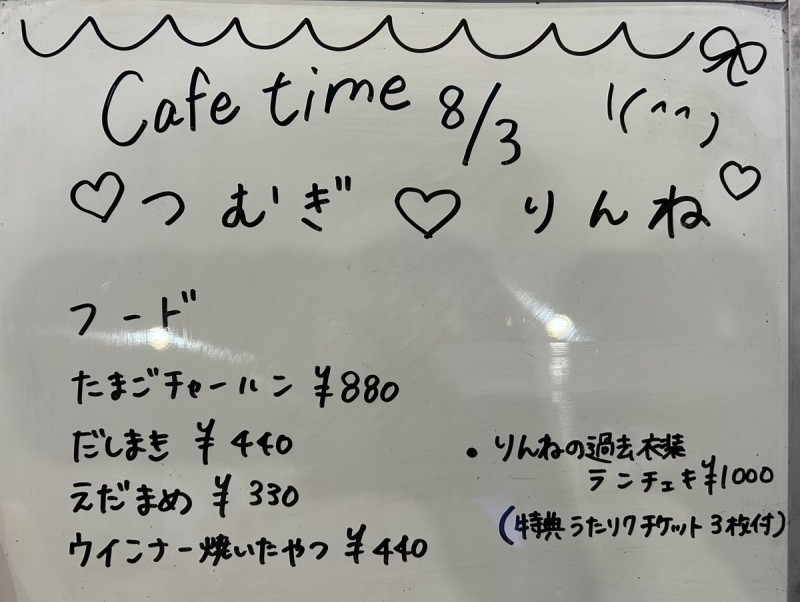 Cafe time 8/3 \(^^)
♡つむぎ♡りんね♡
フード
たまごチャーハン ¥880
だしまき ¥440
えだまめ ¥330
ウインナー焼いたやつ ¥440
・りんねの過去衣装
ランチェキ¥1000
(特典うたリクチケット3枚付)